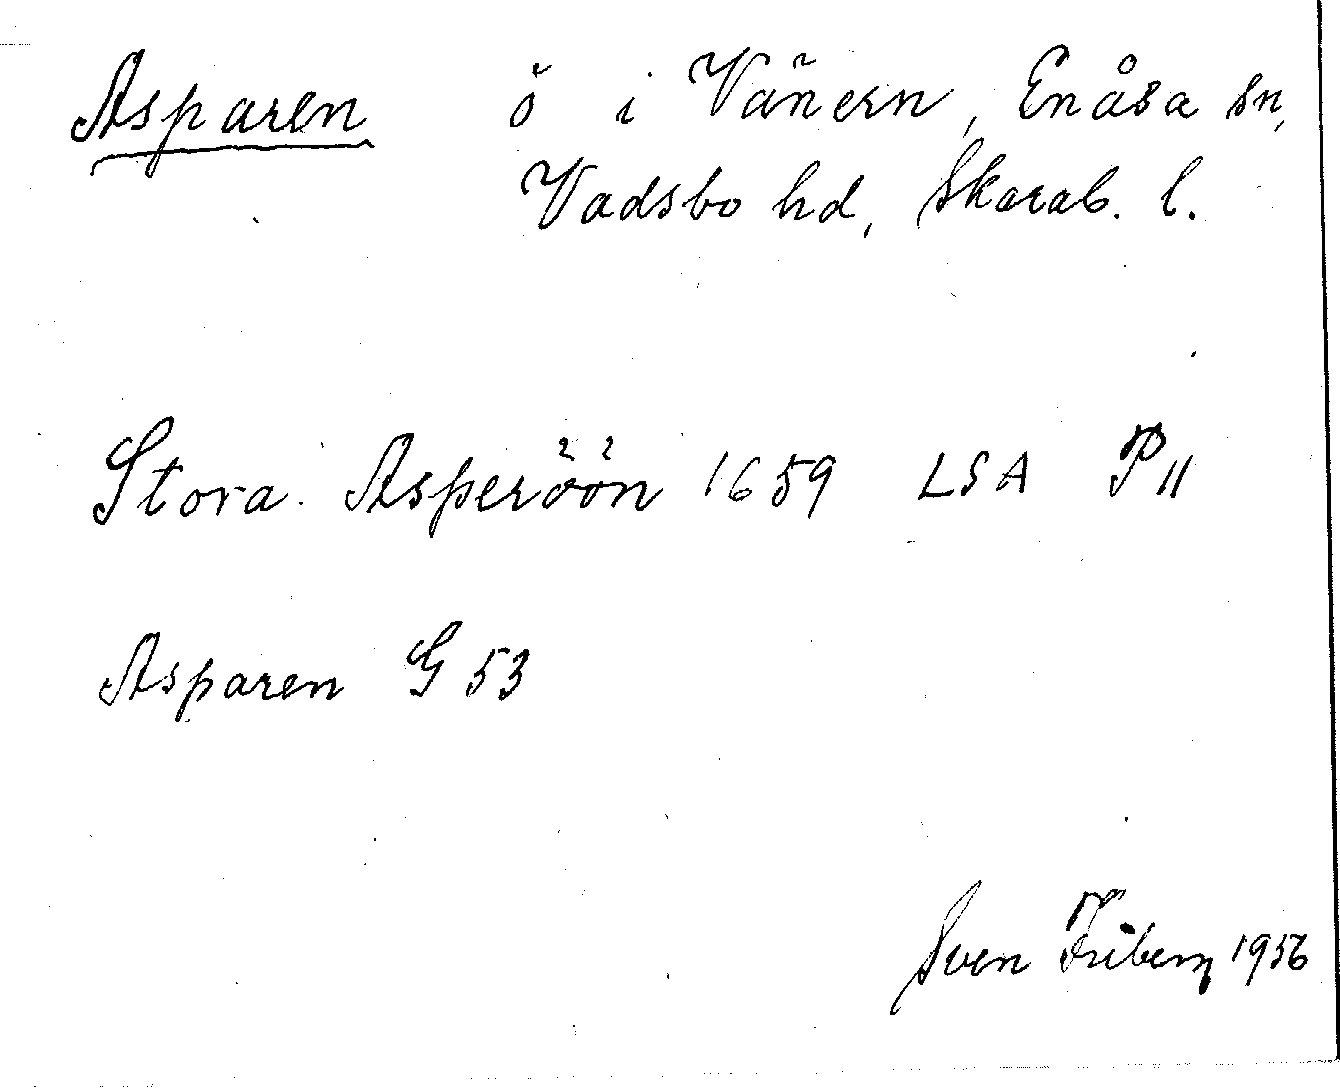 Asparen ö i Vänern, Enåsa sn,
Vadsbo hd, Skarab. l.
Stora Asperöön 1659 LSA P11
Asparen G 53
Sven Friberg 1956